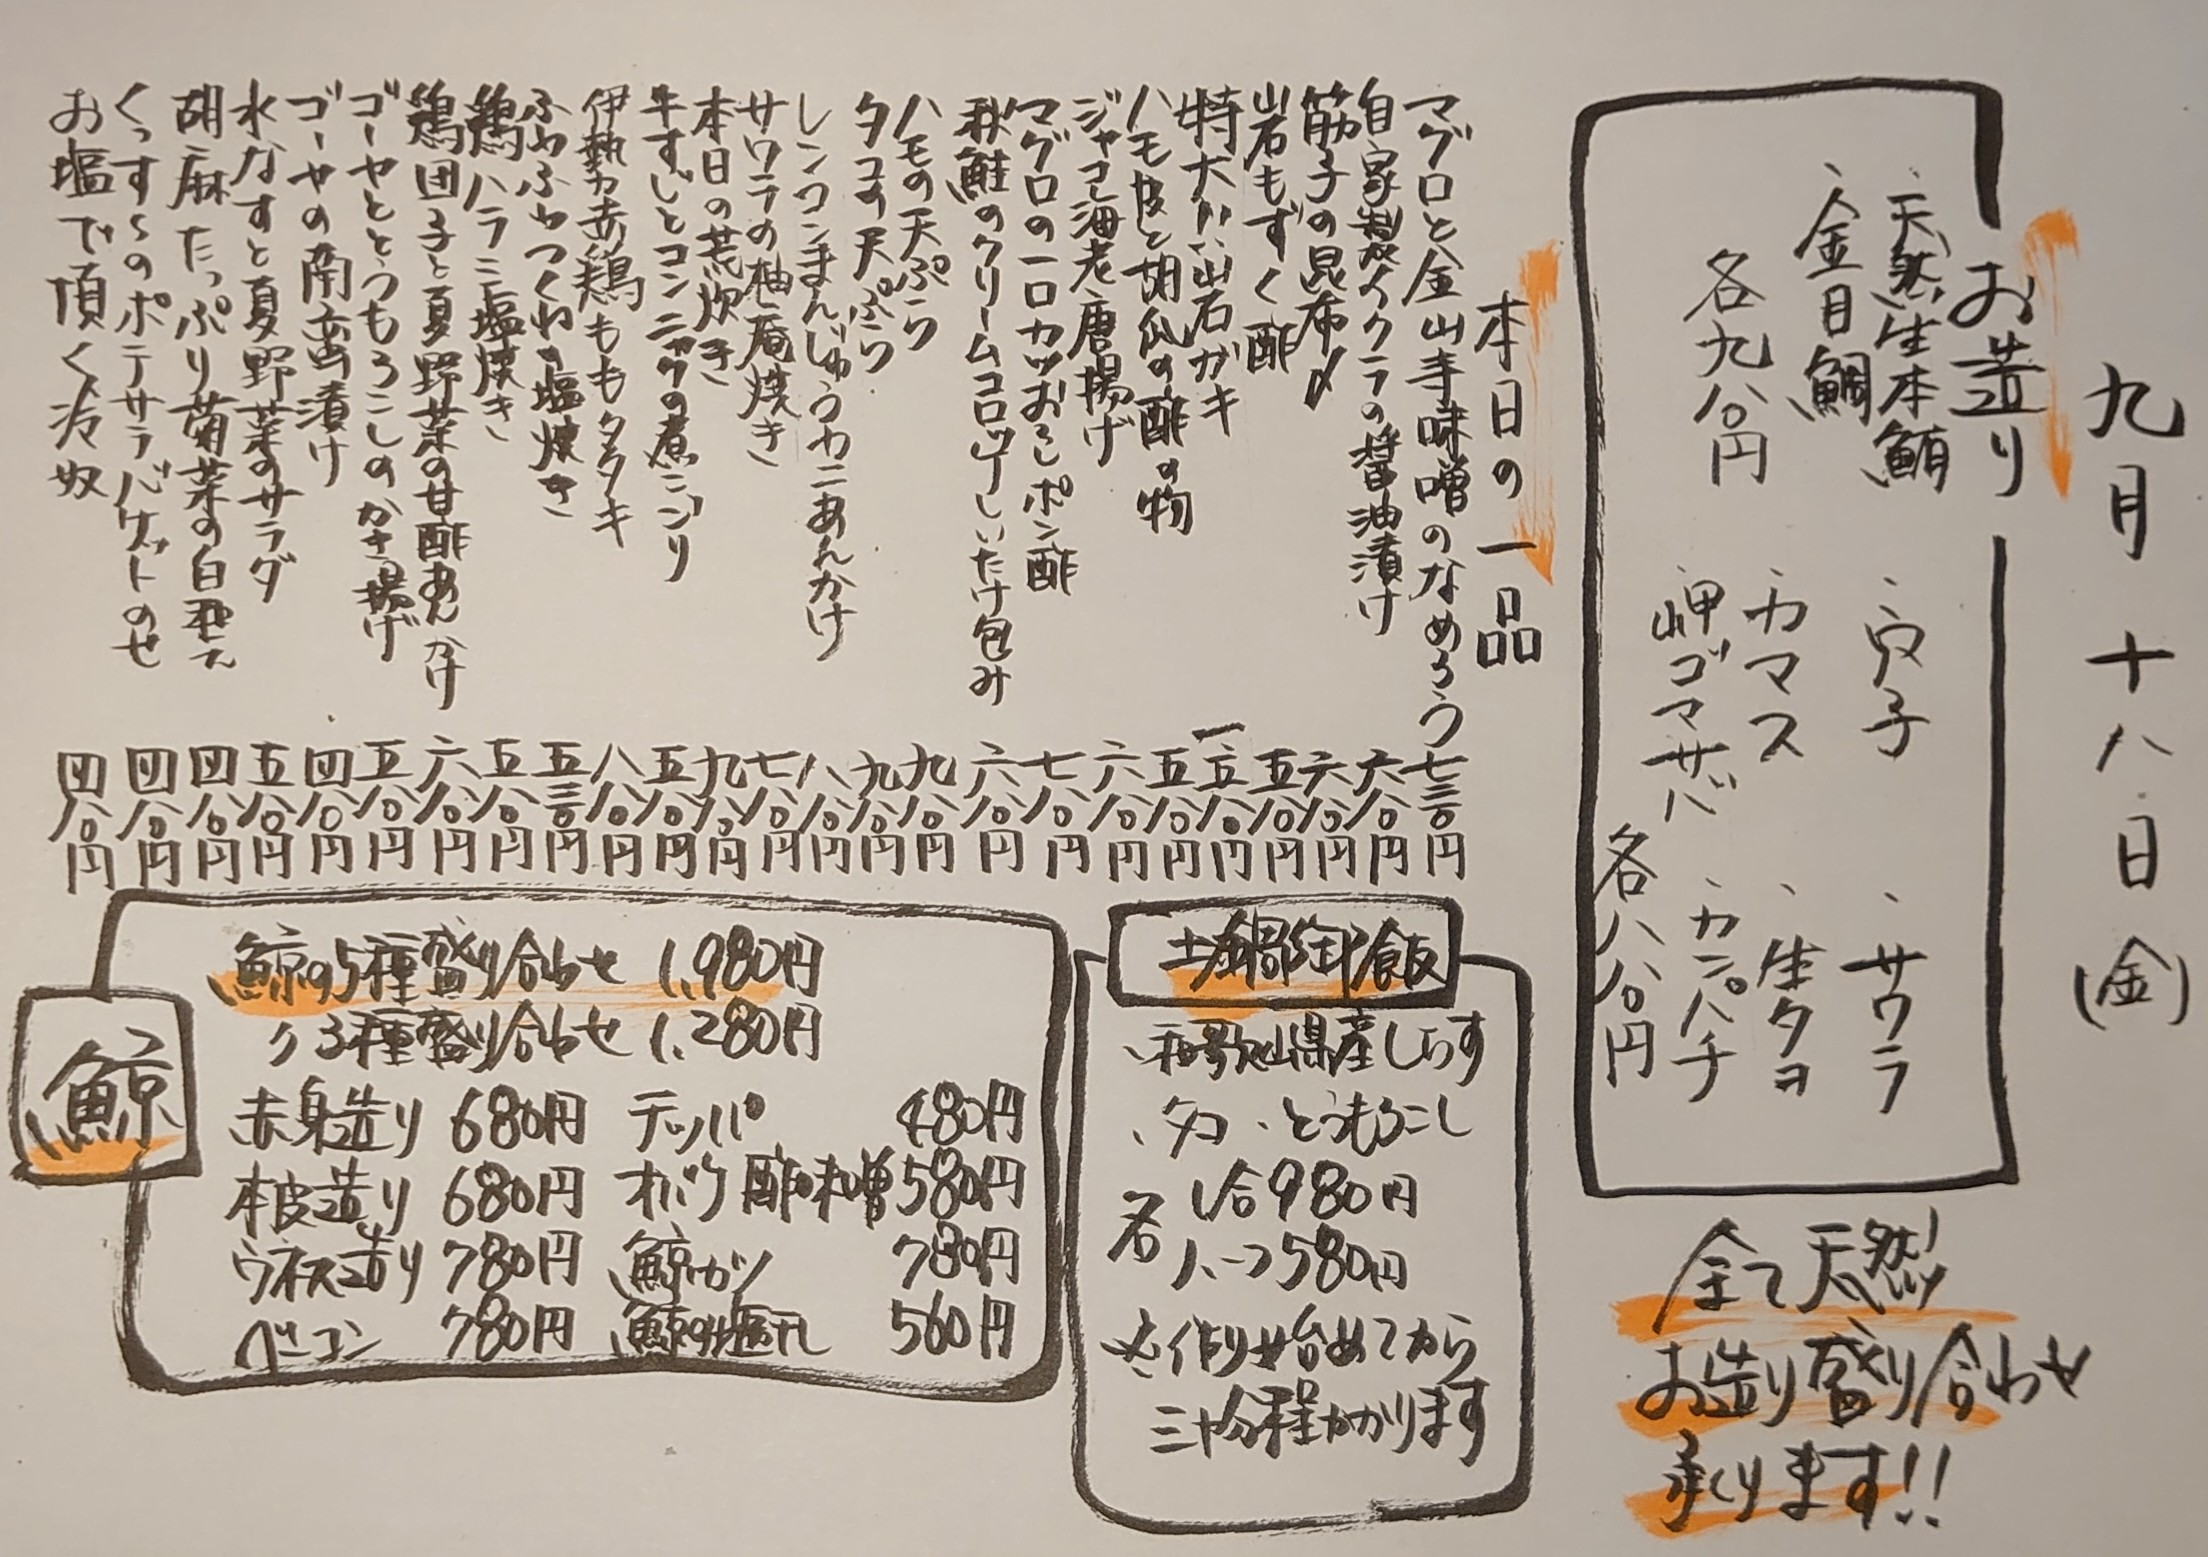 九月十八日(金)
お造り
・天然生本鮪
・金目鯛
各九八〇円
・穴子
・カマス
・岬ゴマサバ
・サワラ
・生タコ
・カンパチ
各八八〇円
全て天然
お造り盛り合わせ
承ります!!
本日の一品
マグロと金山寺味噌のなめろう 七三〇円
自家製イクラの醤油漬け 六八〇円
筋子の昆布〆 六八〇円
岩もずく酢 五八〇円
特大岩ガキ 一、五八〇円
ハモ皮と胡瓜の酢の物 五八〇円
ジャコ海老唐揚げ 六八〇円
マグロの一口カツおろしポン酢 七八〇円
秋鮭のクリームコロッケしいたけ包み 六八〇円
ハモの天ぷら 九八〇円
タコの天ぷら 九八〇円
レンコンまんじゅうカニあんかけ 八八〇円
サワラの柚庵焼き 七八〇円
本日の荒炊き 九八〇円
牛すじとコンニャクの煮こごり 五八〇円
伊勢赤鶏ももタタキ 八八〇円
ふわふわつくねの塩焼き 五三〇円
鶏ハラミ塩焼き 五八〇円
鶏団子と夏野菜の甘酢あんかけ 六八〇円
ゴーヤととうもろこしのかき揚げ 五八〇円
ゴーヤの南蛮漬け 四八〇円
水なすと夏野菜のサラダ 五八〇円
胡麻たっぷり菊菜の白和え 四八〇円
くっすーのポテサラバケットのせ 四八〇円
お塩で頂く冷奴 四八〇円
土鍋御飯
・和歌山県産しらす
・タコ ・とうもろこし
各 一合980円
ハーフ580円
※作り始めてから
三十分程かかります
鯨
鯨の5種盛り合わせ 1,980円
〃 3種盛り合わせ 1,280円
赤身造り 680円 テッパ 480円
本皮造り 680円 オバケ酢味噌 580円
ウネス造り 780円 鯨カツ 780円
ベーコン 780円 鯨の塩干し 560円